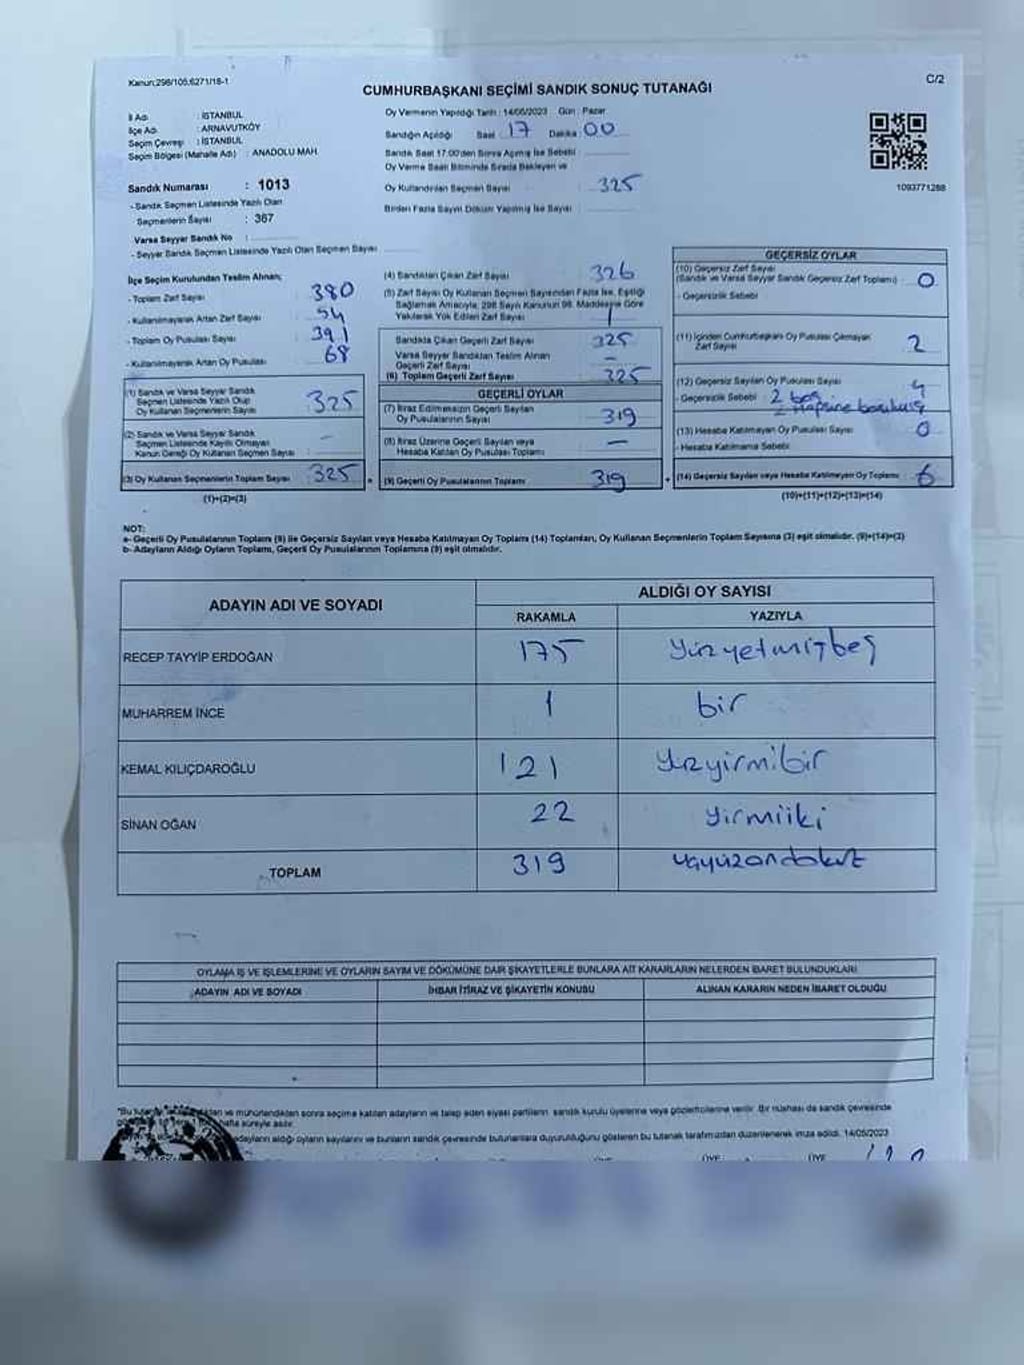 Kanun:298/105,6271/18-1
C/2
CUMHURBAŞKANI SEÇİMİ SANDIK SONUÇ TUTANAĞI
İl Adı : İSTANBUL
İlçe Adı : ARNAVUTKÖY
Seçim Çevresi : İSTANBUL
Seçim Bölgesi (Mahalle Adı) : ANADOLU MAH.
Sandık Numarası : 1013
- Sandık Seçmen Listesinde Yazılı Olan
Seçmenlerin Sayısı : 367
Varsa Seyyar Sandık No :
- Seyyar Sandık Seçmen Listesinde Yazılı Olan Seçmen Sayısı
Oy Vermenin Yapıldığı Tarih : 14/05/2023 Gün : Pazar
Sandığın Açıldığı Saat : 17 Dakika : 00
Sandık Saat 17.00'den Sonra Açılmış İse Sebebi :
Oy Verme Saati Bitiminde Sırada Bekleyen ve
Oy Kullandırılan Seçmen Sayısı : 325
Birden Fazla Sayım Döküm Yapılmış İse Sayısı :
1093771288
İlçe Seçim Kurulundan Teslim Alınan;
- Toplam Zarf Sayısı : 380
- Kullanılmayarak Artan Zarf Sayısı : 54
- Toplam Oy Pusulası Sayısı : 391
- Kullanılmayarak Artan Oy Pusulası : 68
(1) Sandık ve Varsa Seyyar Sandık
Seçmen Listesinde Yazılı Olup
Oy Kullanan Seçmenlerin Sayısı : 325
(2) Sandık ve Varsa Seyyar Sandık
Seçmen Listesinde Kayıtlı Olmayan
Kanun Gereği Oy Kullanan Seçmen Sayısı : -
(3) Oy Kullanan Seçmenlerin Toplam Sayısı : 325
(1)+(2)=(3)
(4) Sandıktan Çıkan Zarf Sayısı : 326
(5) Zarf Sayısı Oy Kullanan Seçmen Sayısından Fazla İse, Eşitliği
Sağlamak Amacıyla, 298 Sayılı Kanunun 98. Maddesine Göre
Yakılarak Yok Edilen Zarf Sayısı : 1
Sandıkta Çıkan Geçerli Zarf Sayısı : 325
Varsa Seyyar Sandıktan Teslim Alınan
Geçerli Zarf Sayısı : -
(6) Toplam Geçerli Zarf Sayısı : 325
GEÇERLİ OYLAR
(7) İtiraz Edilmeksizin Geçerli Sayılan
Oy Pusulalarının Sayısı : 319
(8) İtiraz Üzerine Geçerli Sayılan veya
Hesaba Katılan Oy Pusulası Toplamı : -
(9) Geçerli Oy Pusulalarının Toplamı : 319
GEÇERSİZ OYLAR
(10) Geçersiz Zarf Sayısı
(Sandık ve Varsa Seyyar Sandık Geçersiz Zarf Toplamı) : 0
- Geçersizlik Sebebi
(11) İçinden Cumhurbaşkanı Oy Pusulası Çıkmayan
Zarf Sayısı : 2
(12) Geçersiz Sayılan Oy Pusulası Sayısı : 4
- Geçersizlik Sebebi : 2 boş
(13) Hesaba Katılmayan Oy Pusulası Sayısı : 0
- Hesaba Katılmama Sebebi :
(14) Geçersiz Sayılan veya Hesaba Katılmayan Oy Toplamı : 6
(10)+(11)+(12)+(13)=(14)
NOT:
a- Geçerli Oy Pusulalarının Toplamı (9) ile Geçersiz Sayılan veya Hesaba Katılmayan Oy Toplamı (14) Toplamları, Oy Kullanan Seçmenlerin Toplam Sayısına (3) eşit olmalıdır. (9)+(14)=(3)
b- Adayların Aldığı Oyların Toplamı, Geçerli Oy Pusulalarının Toplamına (9) eşit olmalıdır.
ADAYIN ADI VE SOYADI
ALDIĞI OY SAYISI
RAKAMLA YAZIYLA
RECEP TAYYİP ERDOĞAN 175 Yüzyetmişbeş
MUHARREM İNCE 1 bir
KEMAL KILIÇDAROĞLU 121 Yüzyirmibir
SİNAN OĞAN 22 Yirmiiki
TOPLAM 319 üçyüzondokuz
OYLAMA İŞ VE İŞLEMLERİNE VE OYLARIN SAYIM VE DÖKÜMÜNE DAİR ŞİKAYETLERLE BUNLARA AİT KARARLARIN NELERDEN İBARET BULUNDUKLARI
ADAYIN ADI VE SOYADI İHBAR İTİRAZ VE ŞİKAYETİN KONUSU ALINAN KARARIN NEDEN İBARET OLDUĞU
ve mühürlendikten sonra seçime katılan adayların ve talep eden siyasi partilerin sandık kurulu üyelerine veya gözlemcilerine verilir. Bir nüshası da sandık çevresinde
hafta süreyle asılır.
adayların aldığı oyların sayılarını ve bunların sandık çevresinde bulunanlara duyurulduğunu gösteren bu tutanak tarafımızdan düzenlenerek imza edildi. 14/05/2023
ÜYE ÜYE